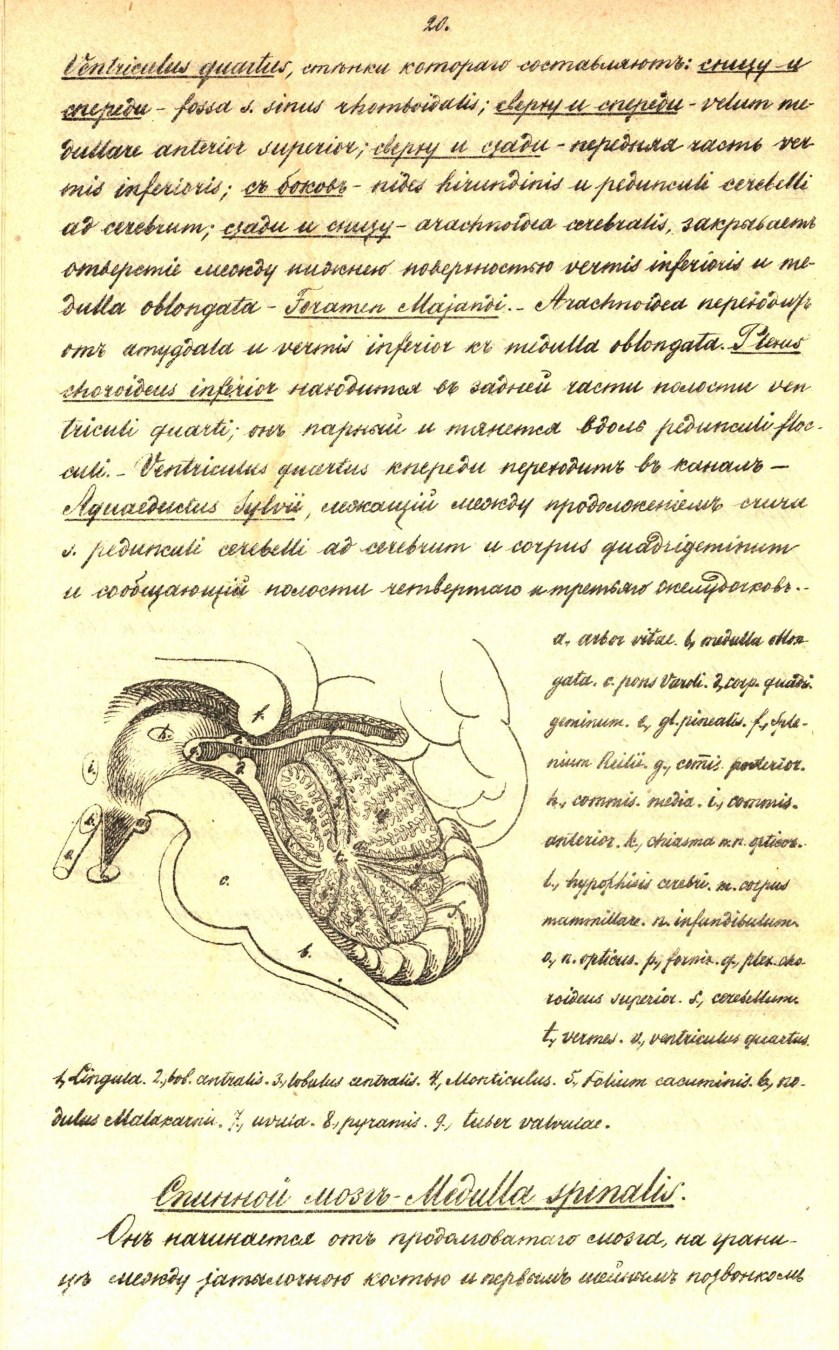 20.
Ventriculus quartus, стѣнки котораго составляютъ: снизу и
спереди - fossa s. sinus rhomboidalis; сверху и спереди - velum me-
dullare anterior superior; сверху и сзади - передняя часть ver-
mis inferioris; съ боковъ - nides hirundinis и pedunculi cerebelli
ad cerebrum; сзади и снизу - arachnoidea cerebralis, закрываетъ
отверстіе между нижнею поверхностью vermis inferioris и me-
dulla oblongata - Foramen Majandi. - Arachnoidea переходитъ
отъ amygdala и vermis inferior къ medulla oblongata. Plexus
choroideus inferior находится въ задней части полости ven
triculi quarti; онъ парный и тянется вдоль pedunculi floc-
culi. - Ventriculus quartus кпереди переходитъ въ каналъ -
Aquaeductus Sylvii, лежащій между продолженіемъ crura
s. pedunculi cerebelli ad cerebrum и corpus quadrigeminum
и сообщающій полости четвертаго и третьяго желудочковъ. -
a, arbor vitae. b, medulla oblon-
gata. c. pons Varoli. d, corp. quadri-
geminum. e, gl. pinealis. f, Sple-
nium Reilii. g, com̄is. posterior.
h, commis. media. i, commis.
anterior. k, chiasma n.n. opticor.
l, hypophisis cerebri. m. corpus
mammillare. n. infundibulum.
o, n. opticus. p, fornix. q, plex. cho
roideus superior. s, cerebellum.
t, vermes. v, ventriculus quartus.
f.
h.
i.
k.
o.
c.
b.
1, Lingula. 2, lob. centralis. 3, lobulus centralis. 4, Monticulus. 5, Folium cacuminis. 6, no-
dulus Malakarnii. 7, uvula. 8, pyramis. 9, tuber valvulae.
Спинной мозгъ - Medulla spinalis.
Онъ начинается отъ продолговатаго мозга, на грани-
цѣ между затылочною костью и первымъ шейнымъ позвонкомъ